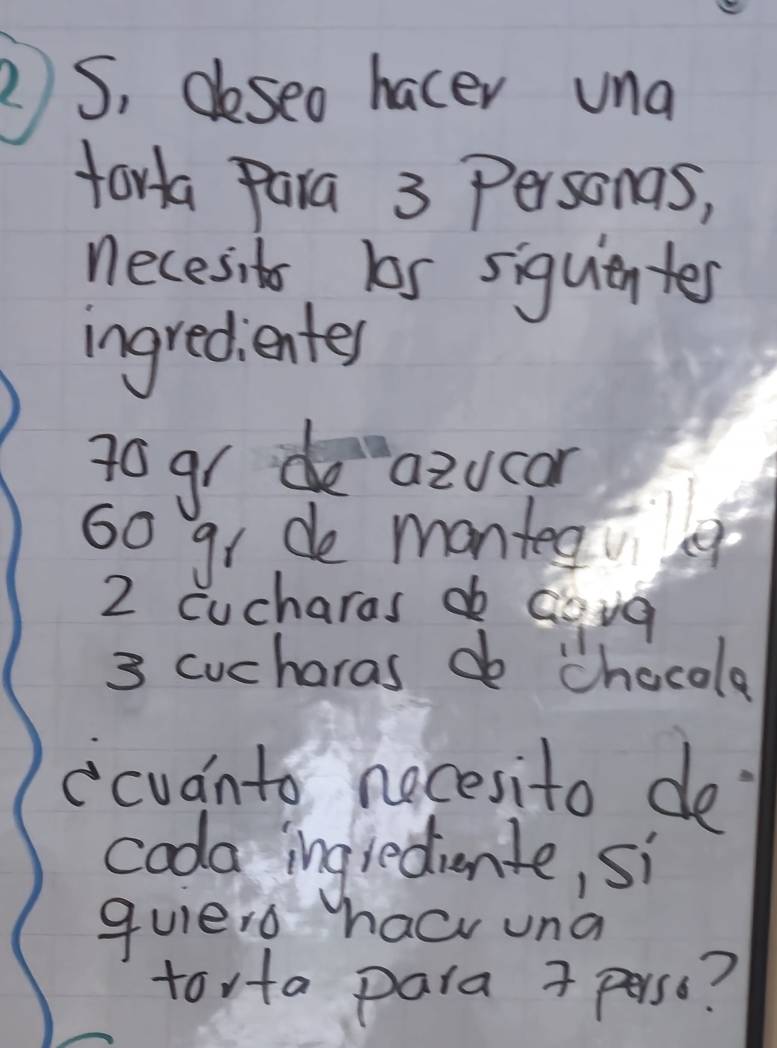 2) Si deseo hacer una
torta para 3 Personas,
necesito los siguientes
ingredientes
70 gr de azucar
60 gr de mantequilla
2 cucharas de agua
3 cucharas de chocola
¿cuánto necesito de
cada ingrediente, si
quiero hacer una
torta para 7 perso?